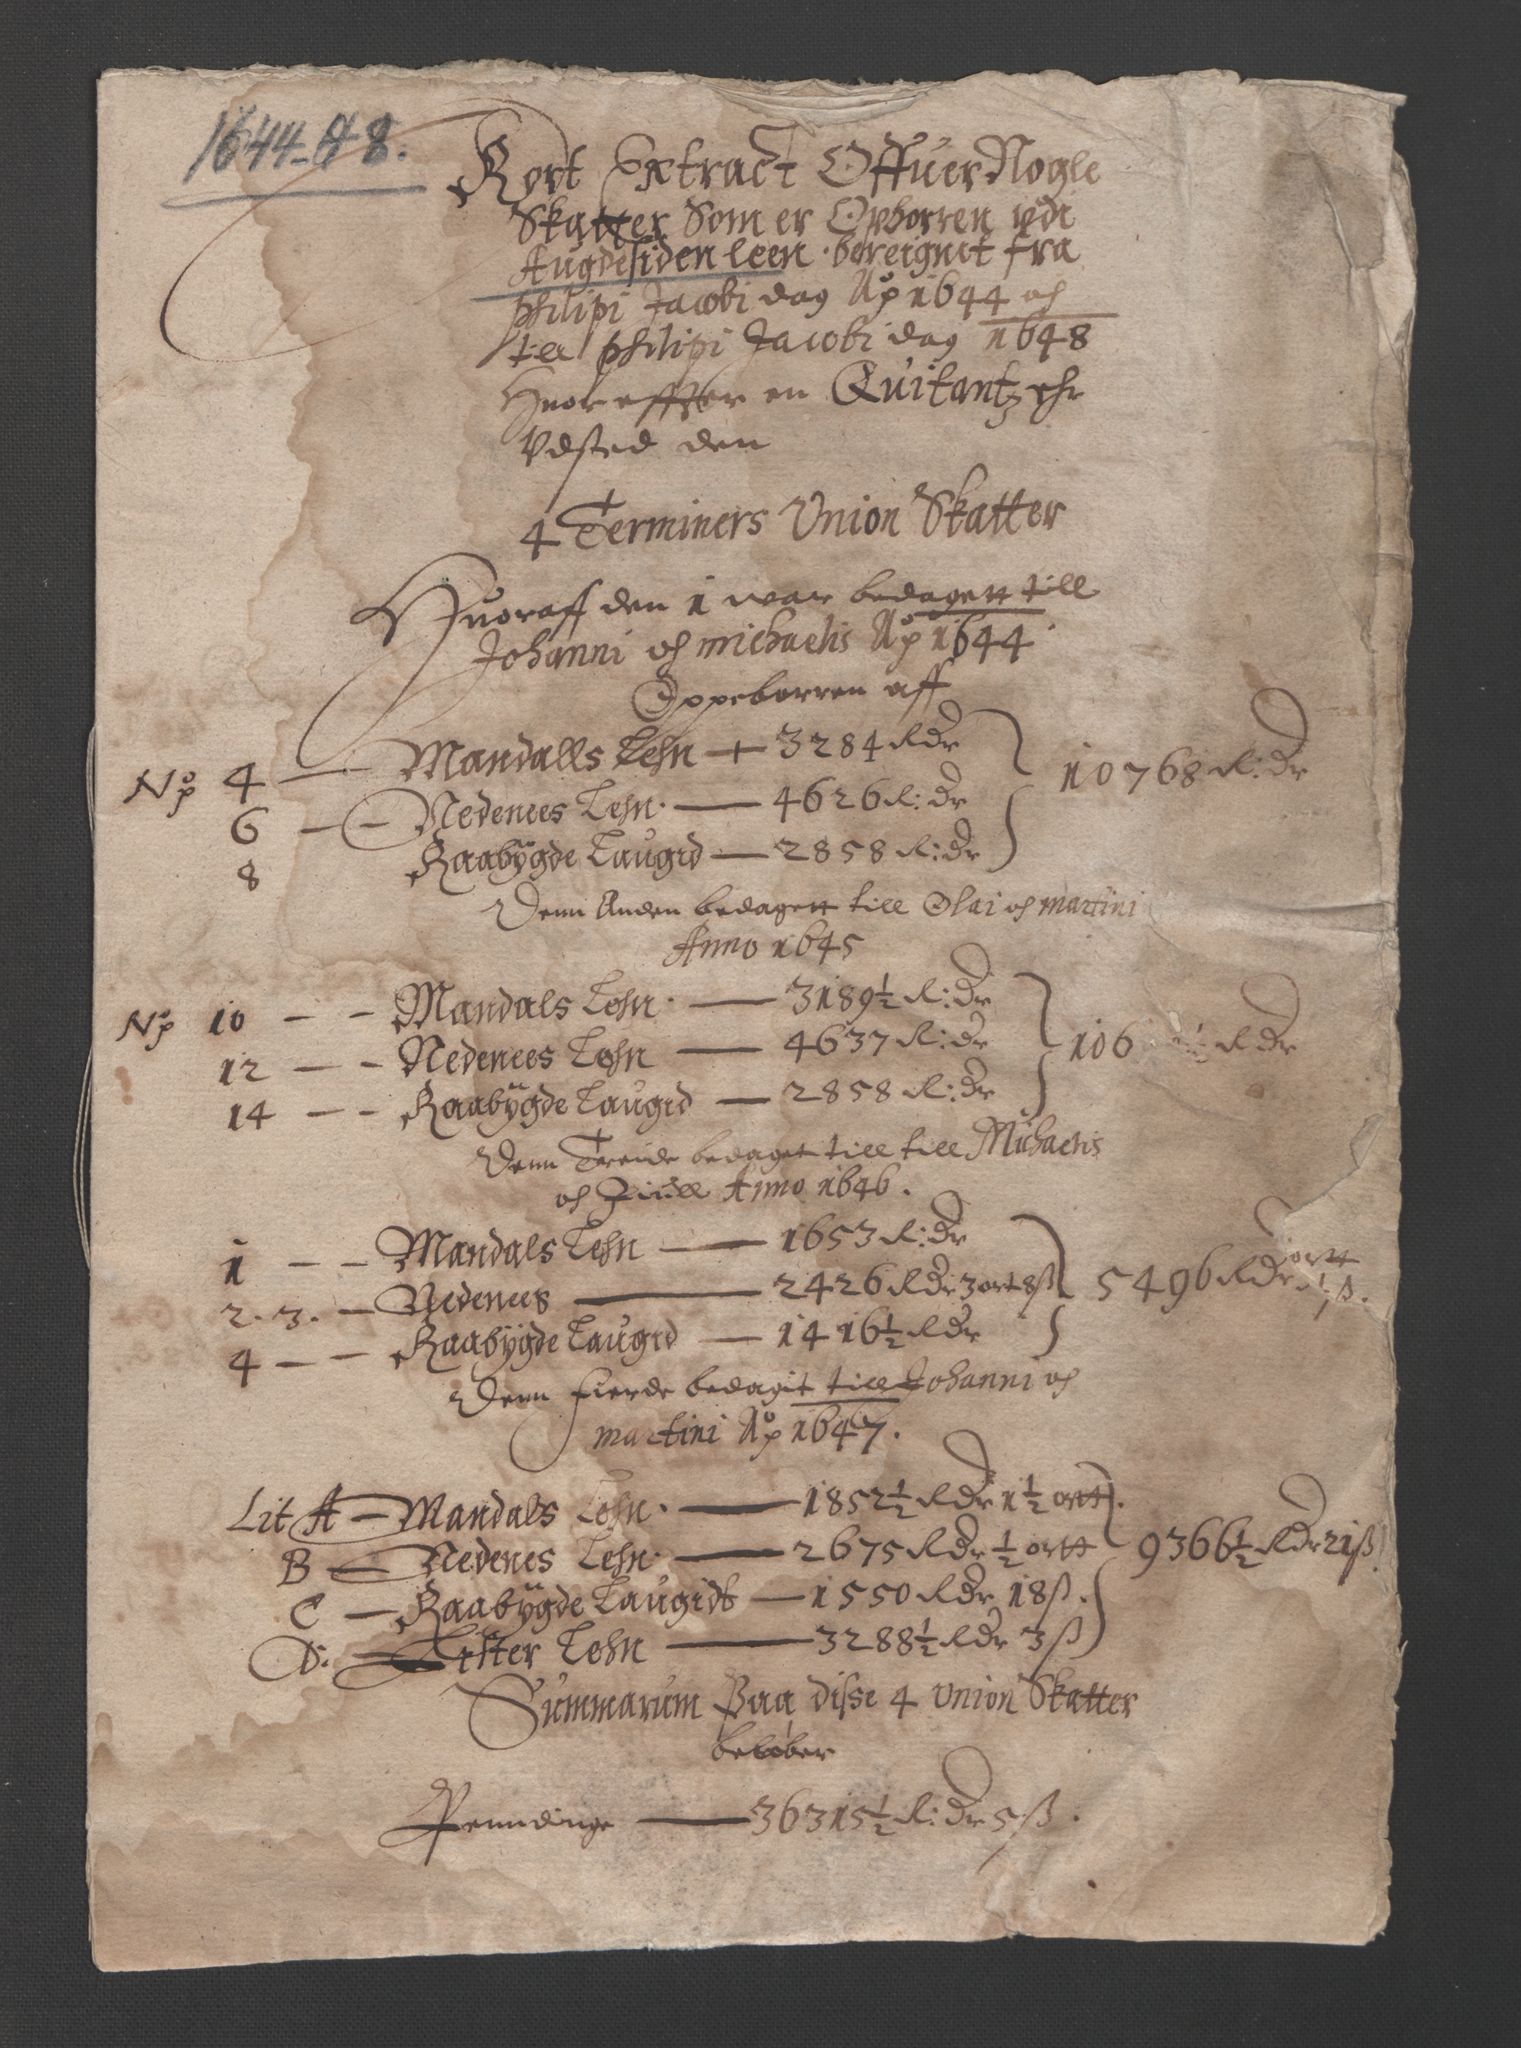 1644-48.
Kort Extract Offuer Nogle
Skatter Som er Opborren udi
Augdesiden leen bereignit fra
Philipi Jacobi dag Aō 1644 och
till philipi Jacobi dag 1648
Huor effter en Quitantz ehr
Vdsted den
4 Terminers Union Skatter
Huoraff den 1 war bedagett till
Johanni och michaelis Aō 1644
Oppeborren aff
No 4 — Mandalls Lehn — 3284 Rdr
6 — Nedenees Lehn — 4626 R:dr
10768 R:dr
8 Raabÿgde Laugid — 2858 R:dr
Denn Anden bedagett till Olai och martini
Anno 1645
No 10 — Mandals Lehn — 3189½ R:dr
12 — Nedenees Lehn — 4637 R:dr
106 ½ Rdr
14 — Raabÿgde Laugid — 2858 R:dr
Denn Treide bedaget till till Michaelis
och Juull Anno 1646.
1 — Mandals Lehn — 1653 R:dr
2. 3. — Nedenees — 2426 Rdr 3 ort 8 ß
5496 Rdr ortt ß.
4 — Raabÿgde Laugid — 1416½ Rdr
Denn fierde bedagit till Johanni och
martini Aō 1647.
Lit A — Mandals Lehn — 1852½ Rdr 1½ ortt.
B — Nedenes Lehn — 2675 Rdr ½ ortt
9366½ Rdr 21 ß
C — Raabÿgde Laugidt — 1550 Rdr 18 ß.
D: — Lister Lehn — 3288½ Rdr 3 ß
Summarum Paa disse 4 Union Skatter
beløber
Penndinge — 36315½ R:dr 5 ß.